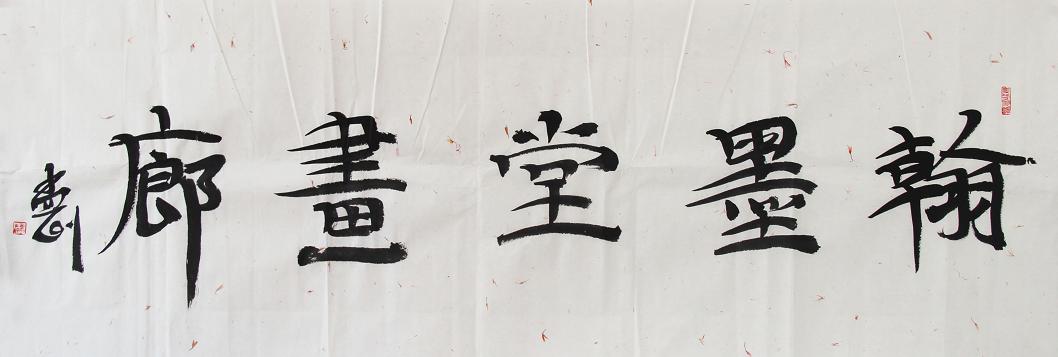 翰墨堂畫廊